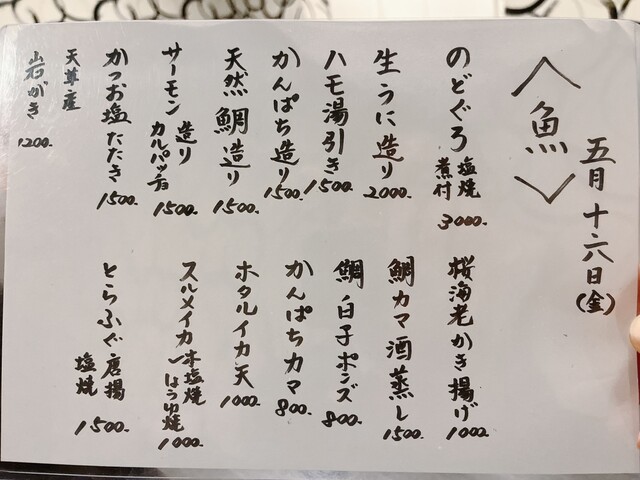 五月十六日(金)
〈魚〉
のどぐろ 塩焼 煮付 3000.
生うに造り 2000.
ハモ湯引き 1500.
かんぱち造り 1500.
天然鯛造り 1500.
サーモン 造り カルパッチョ 1500.
かつお塩たたき 1500.
天草産
岩がき 1200.
桜海老かき揚げ 1000.
鯛カマ酒蒸し 1500.
鯛白子ポンズ 800.
かんぱちカマ 800.
ホタルイカ天 1000.
スルメイカ 塩焼 しょうゆ焼 1000.
とらふぐ 唐揚 塩焼 1500.